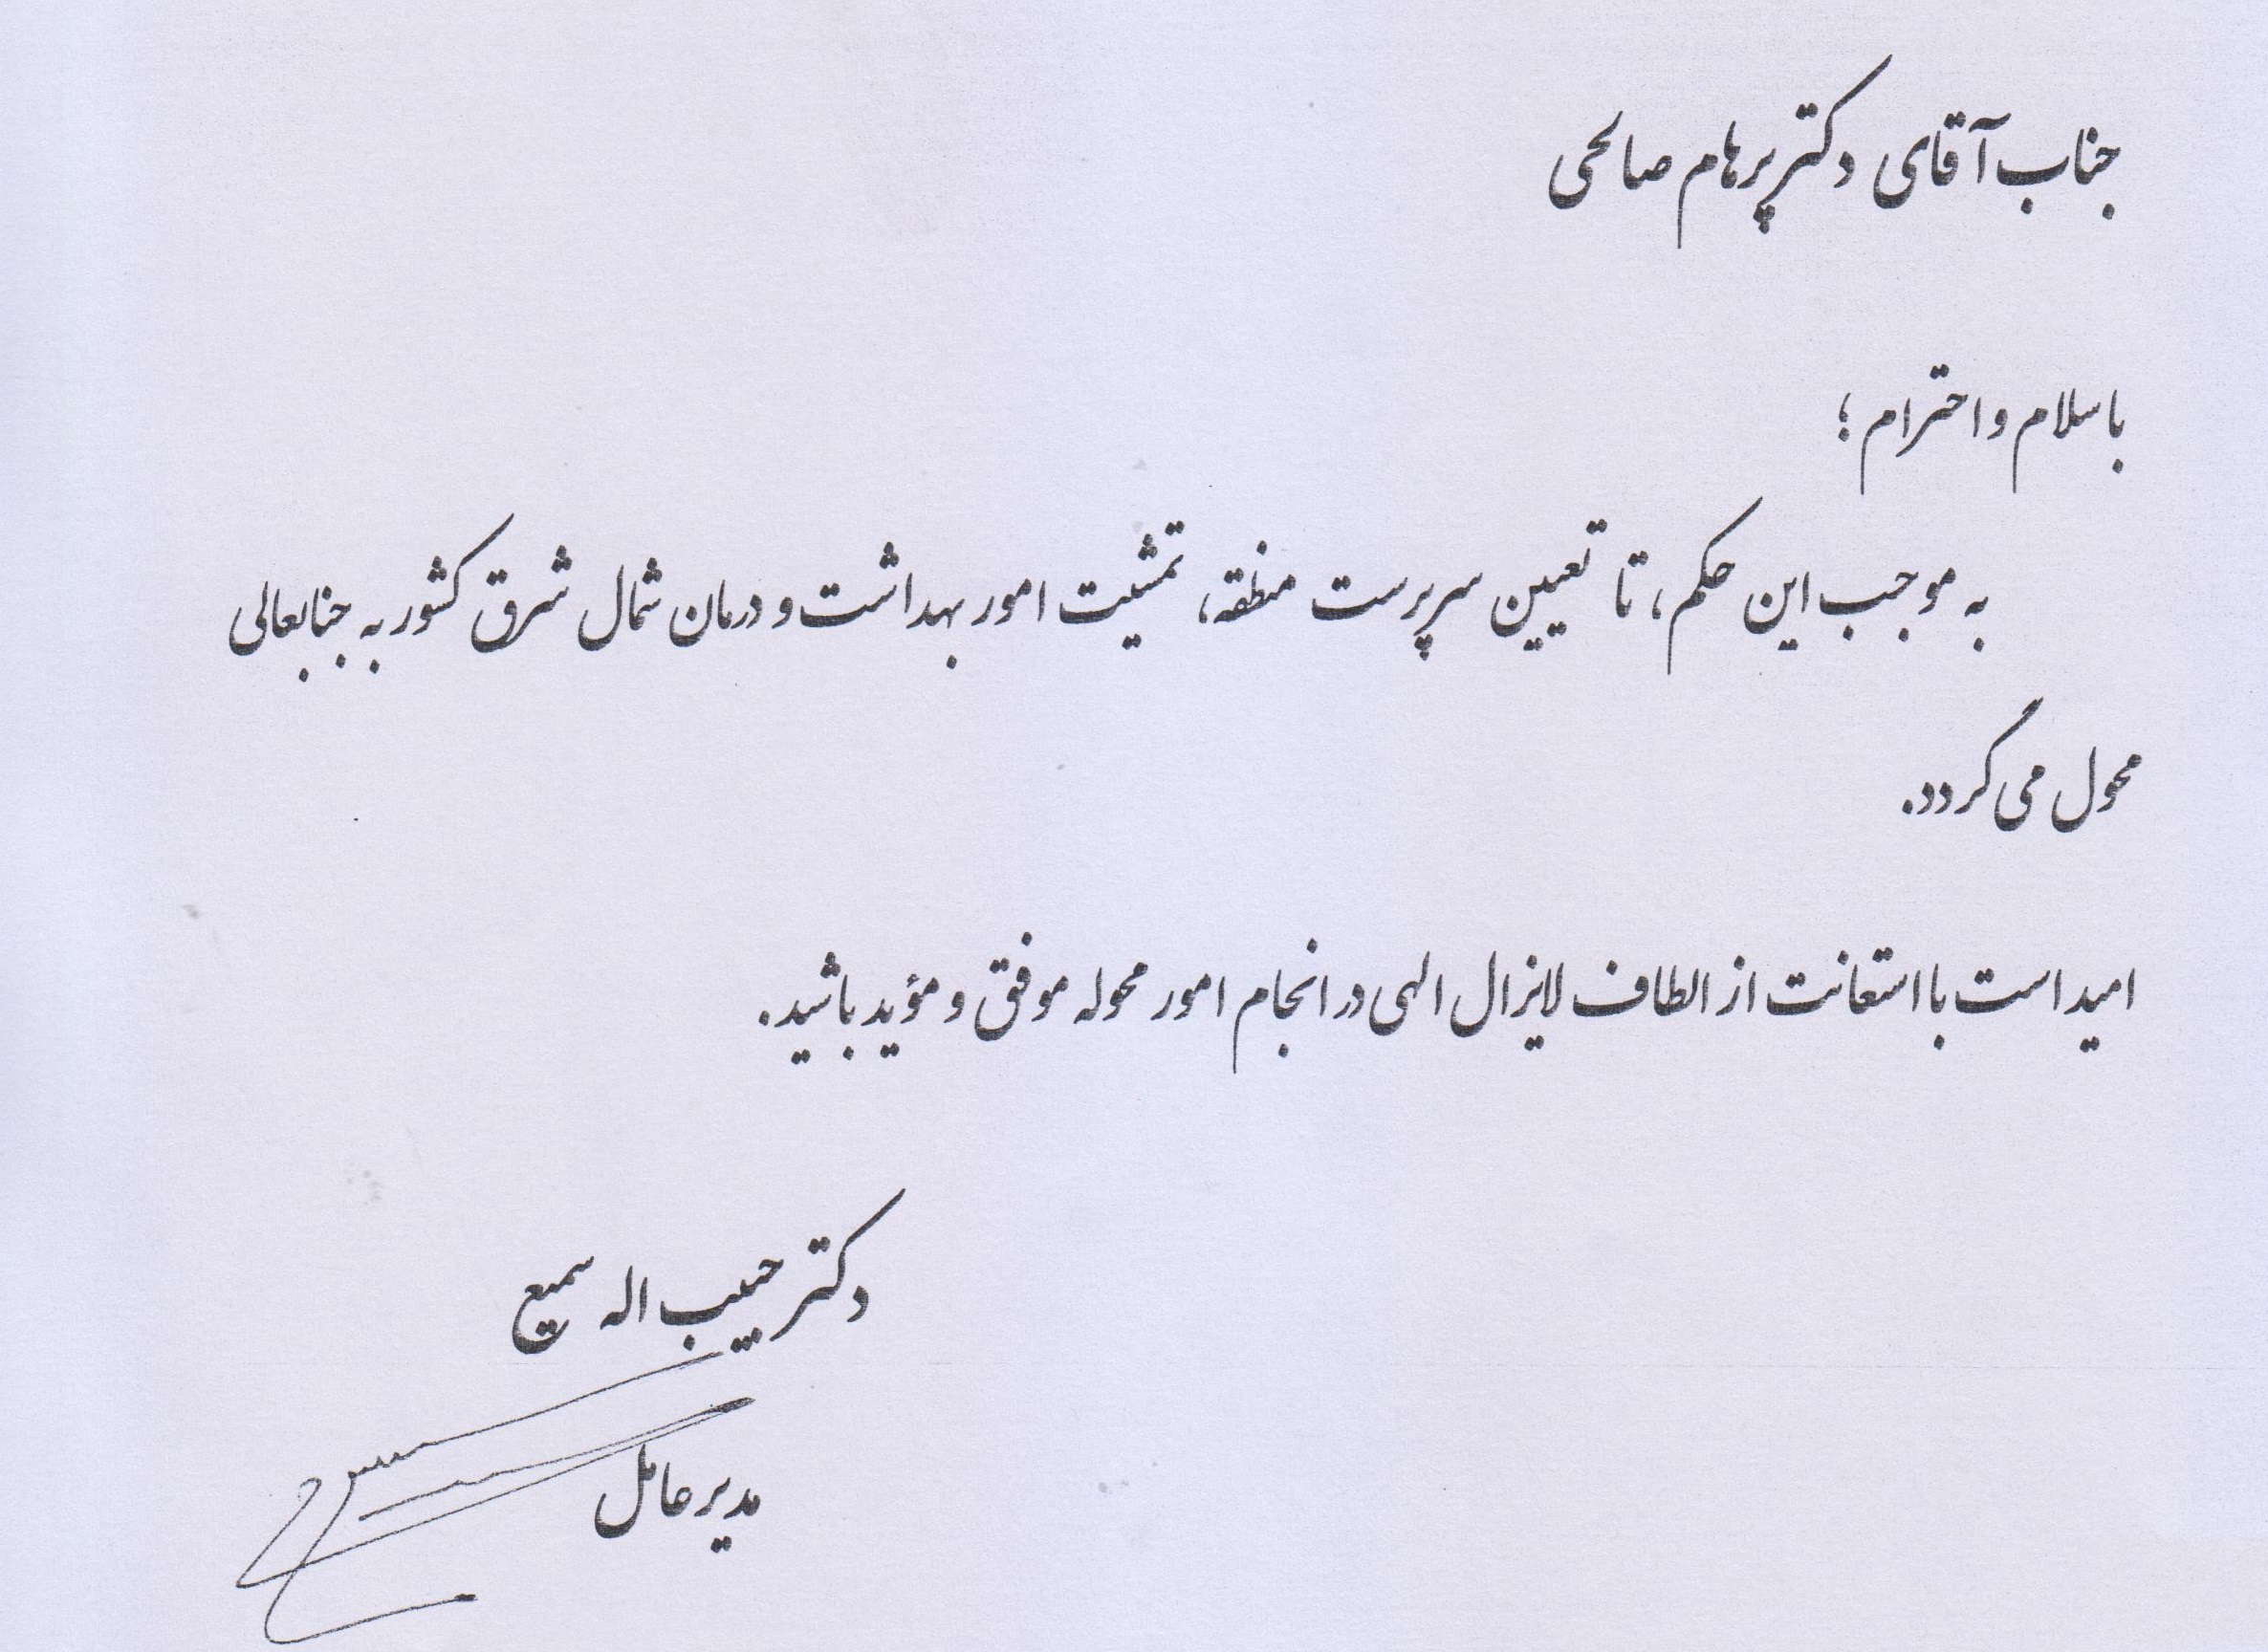 جناب آقای دکتر پرهام صالحی
با سلام و احترام ؛
به موجب این حکم، تا تعیین سرپرست منطقه، تمشیت امور بهداشت و درمان شمال شرق کشور به جنابعالی
محول می گردد.
امید است با استعانت از الطاف لایزال الهی در انجام امور محوله موفق و مؤید باشید.
دکتر حبیب اله سمیع
مدیر عامل